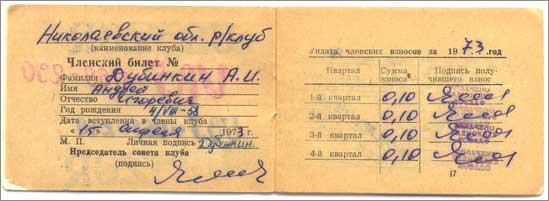 Николаевский обл. р/клуб
(наименование клуба)
Членский билет №
Фамилия Дубинкин А.И.
Имя Андрей
Отчество Игоревич
Год рождения
Дата вступления в члены клуба
„15“ апреля 1973 г.
М. П. Личная подпись
Председатель совета клуба
(подпись)
Уплата членских взносов за 1973 год
Квартал Сумма взноса Подпись получившего взнос
1-й квартал 0,10
2-й квартал 0,10
3-й квартал 0,10
4-й квартал 0,10
17